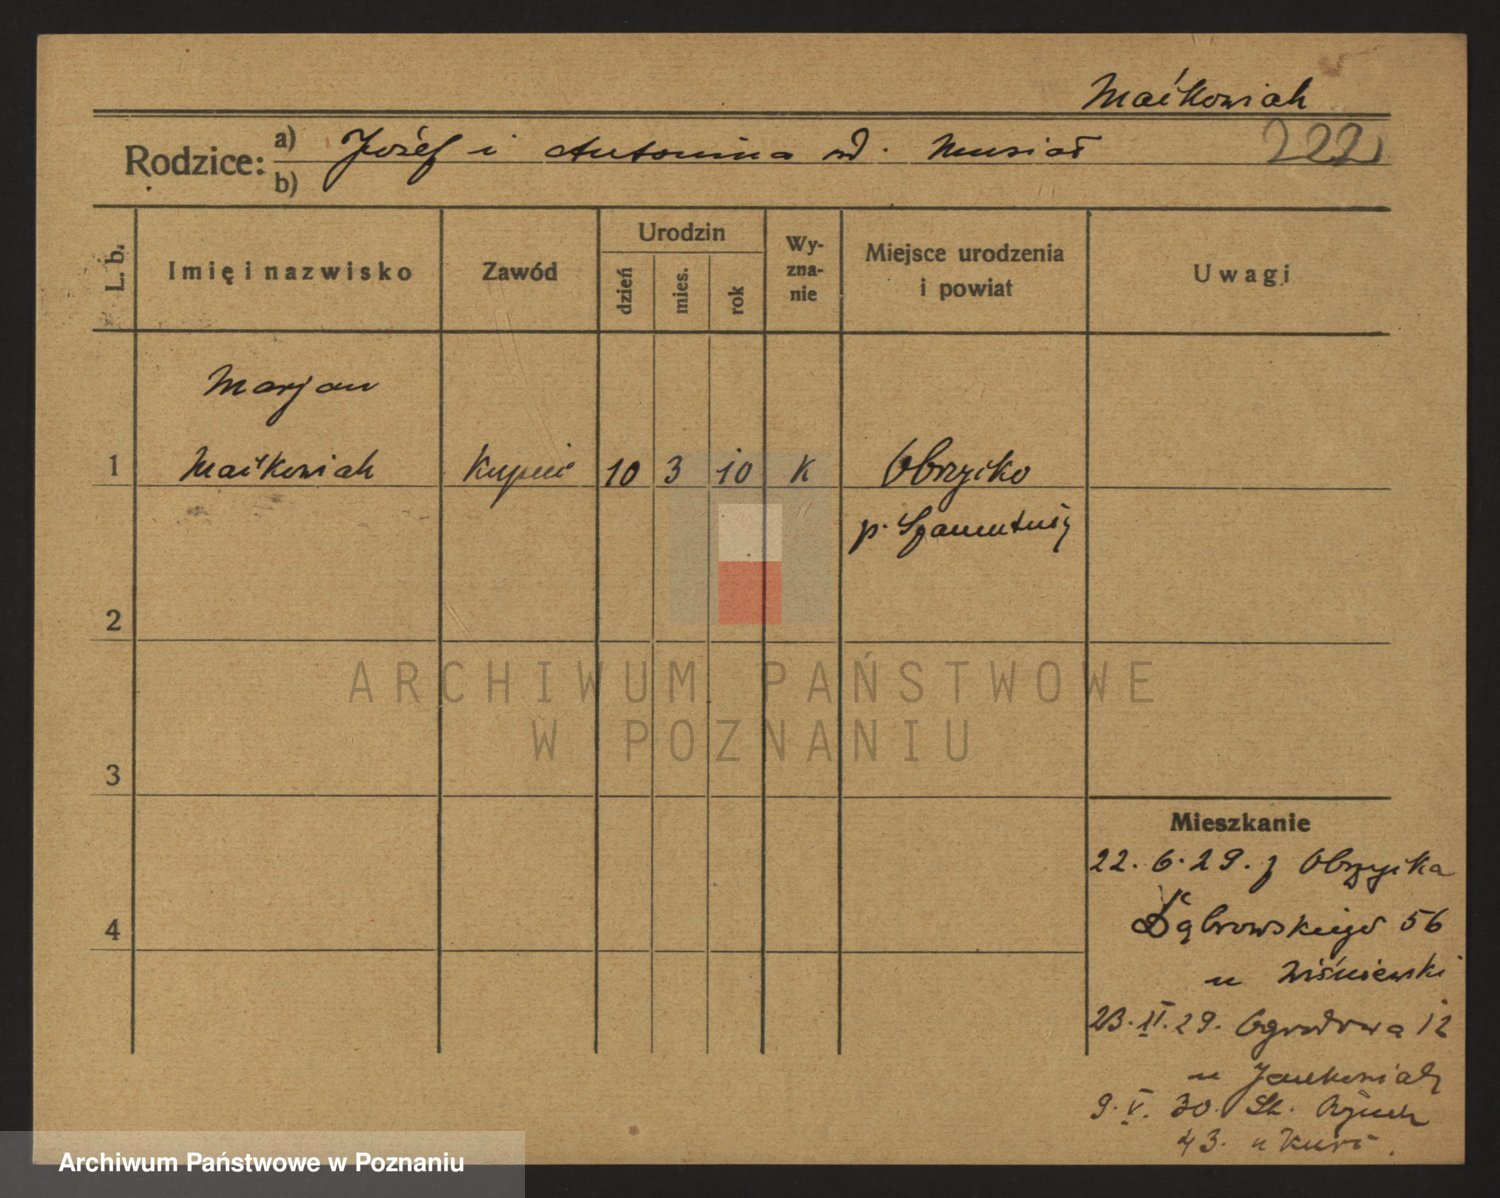 Maćkowiak
Rodzice: a) Józef i Antonina z d. Musiał 222
b)
L. b. Imię i nazwisko Zawód Urodzin dzień mies. rok Wy-zna-nie Miejsce urodzenia i powiat Uwagi
Marjan
1 Maćkowiak Kupiec 10 3 10 K Obrzycko
p. Szamotuły
2
ARCHIWUM PAŃSTWOWE
W POZNANIU
3
Mieszkanie
22.6.29. z Obrzycka
4 Dąbrowskiego 56
u Wiśniewski
23.II.29. Ogrodowa 12
u
9.V.30. St. Rynek
43. u
Archiwum Państwowe w Poznaniu